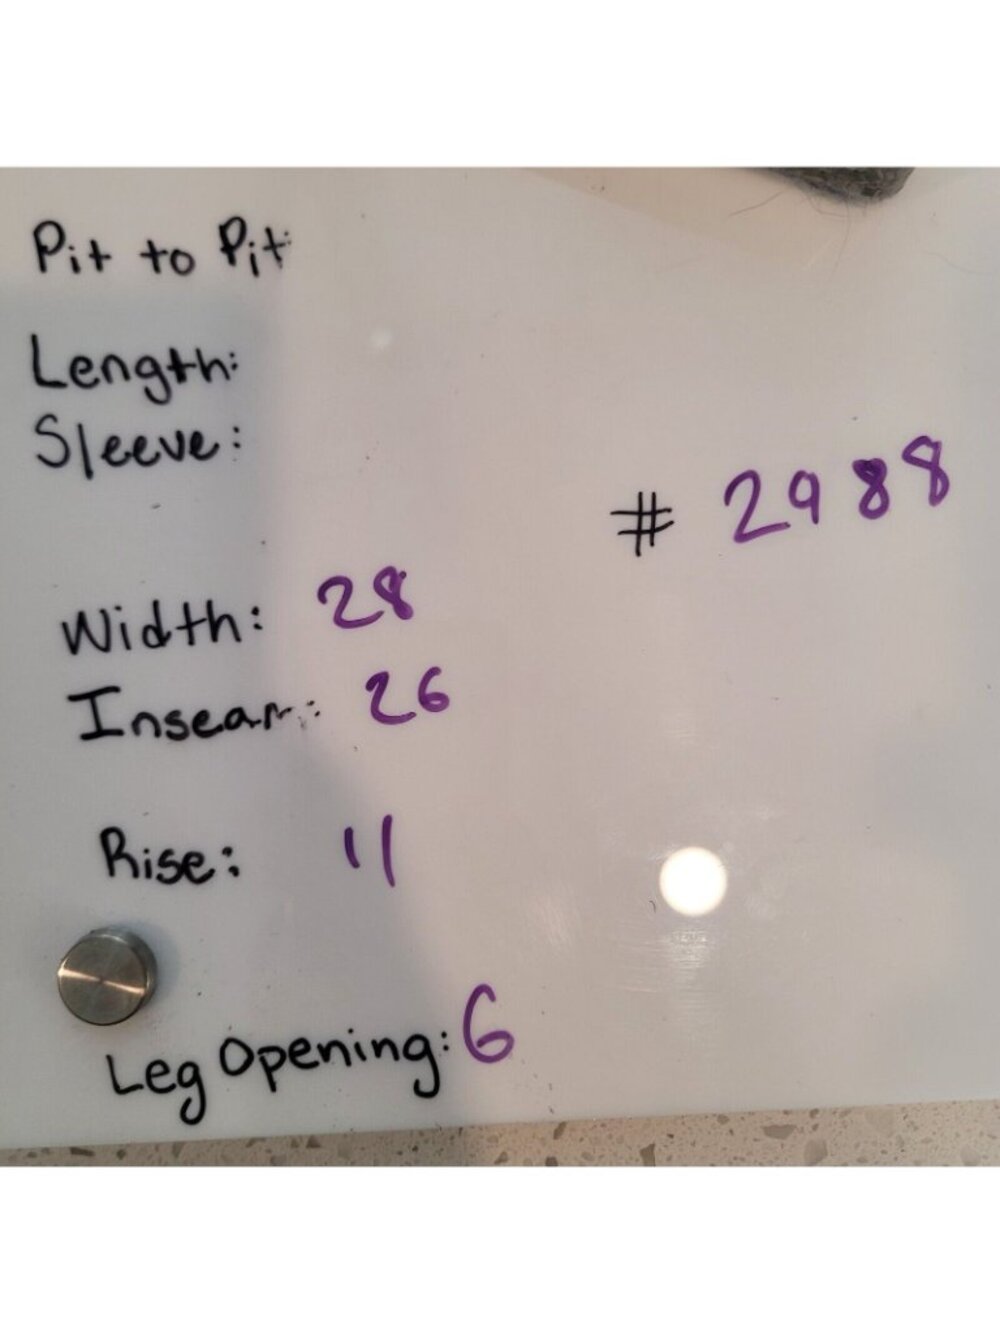 Pit to Pit:
Length:
Sleeve:
# 2988
Width: 28
Inseam: 26
Rise: 11
Leg Opening: 6